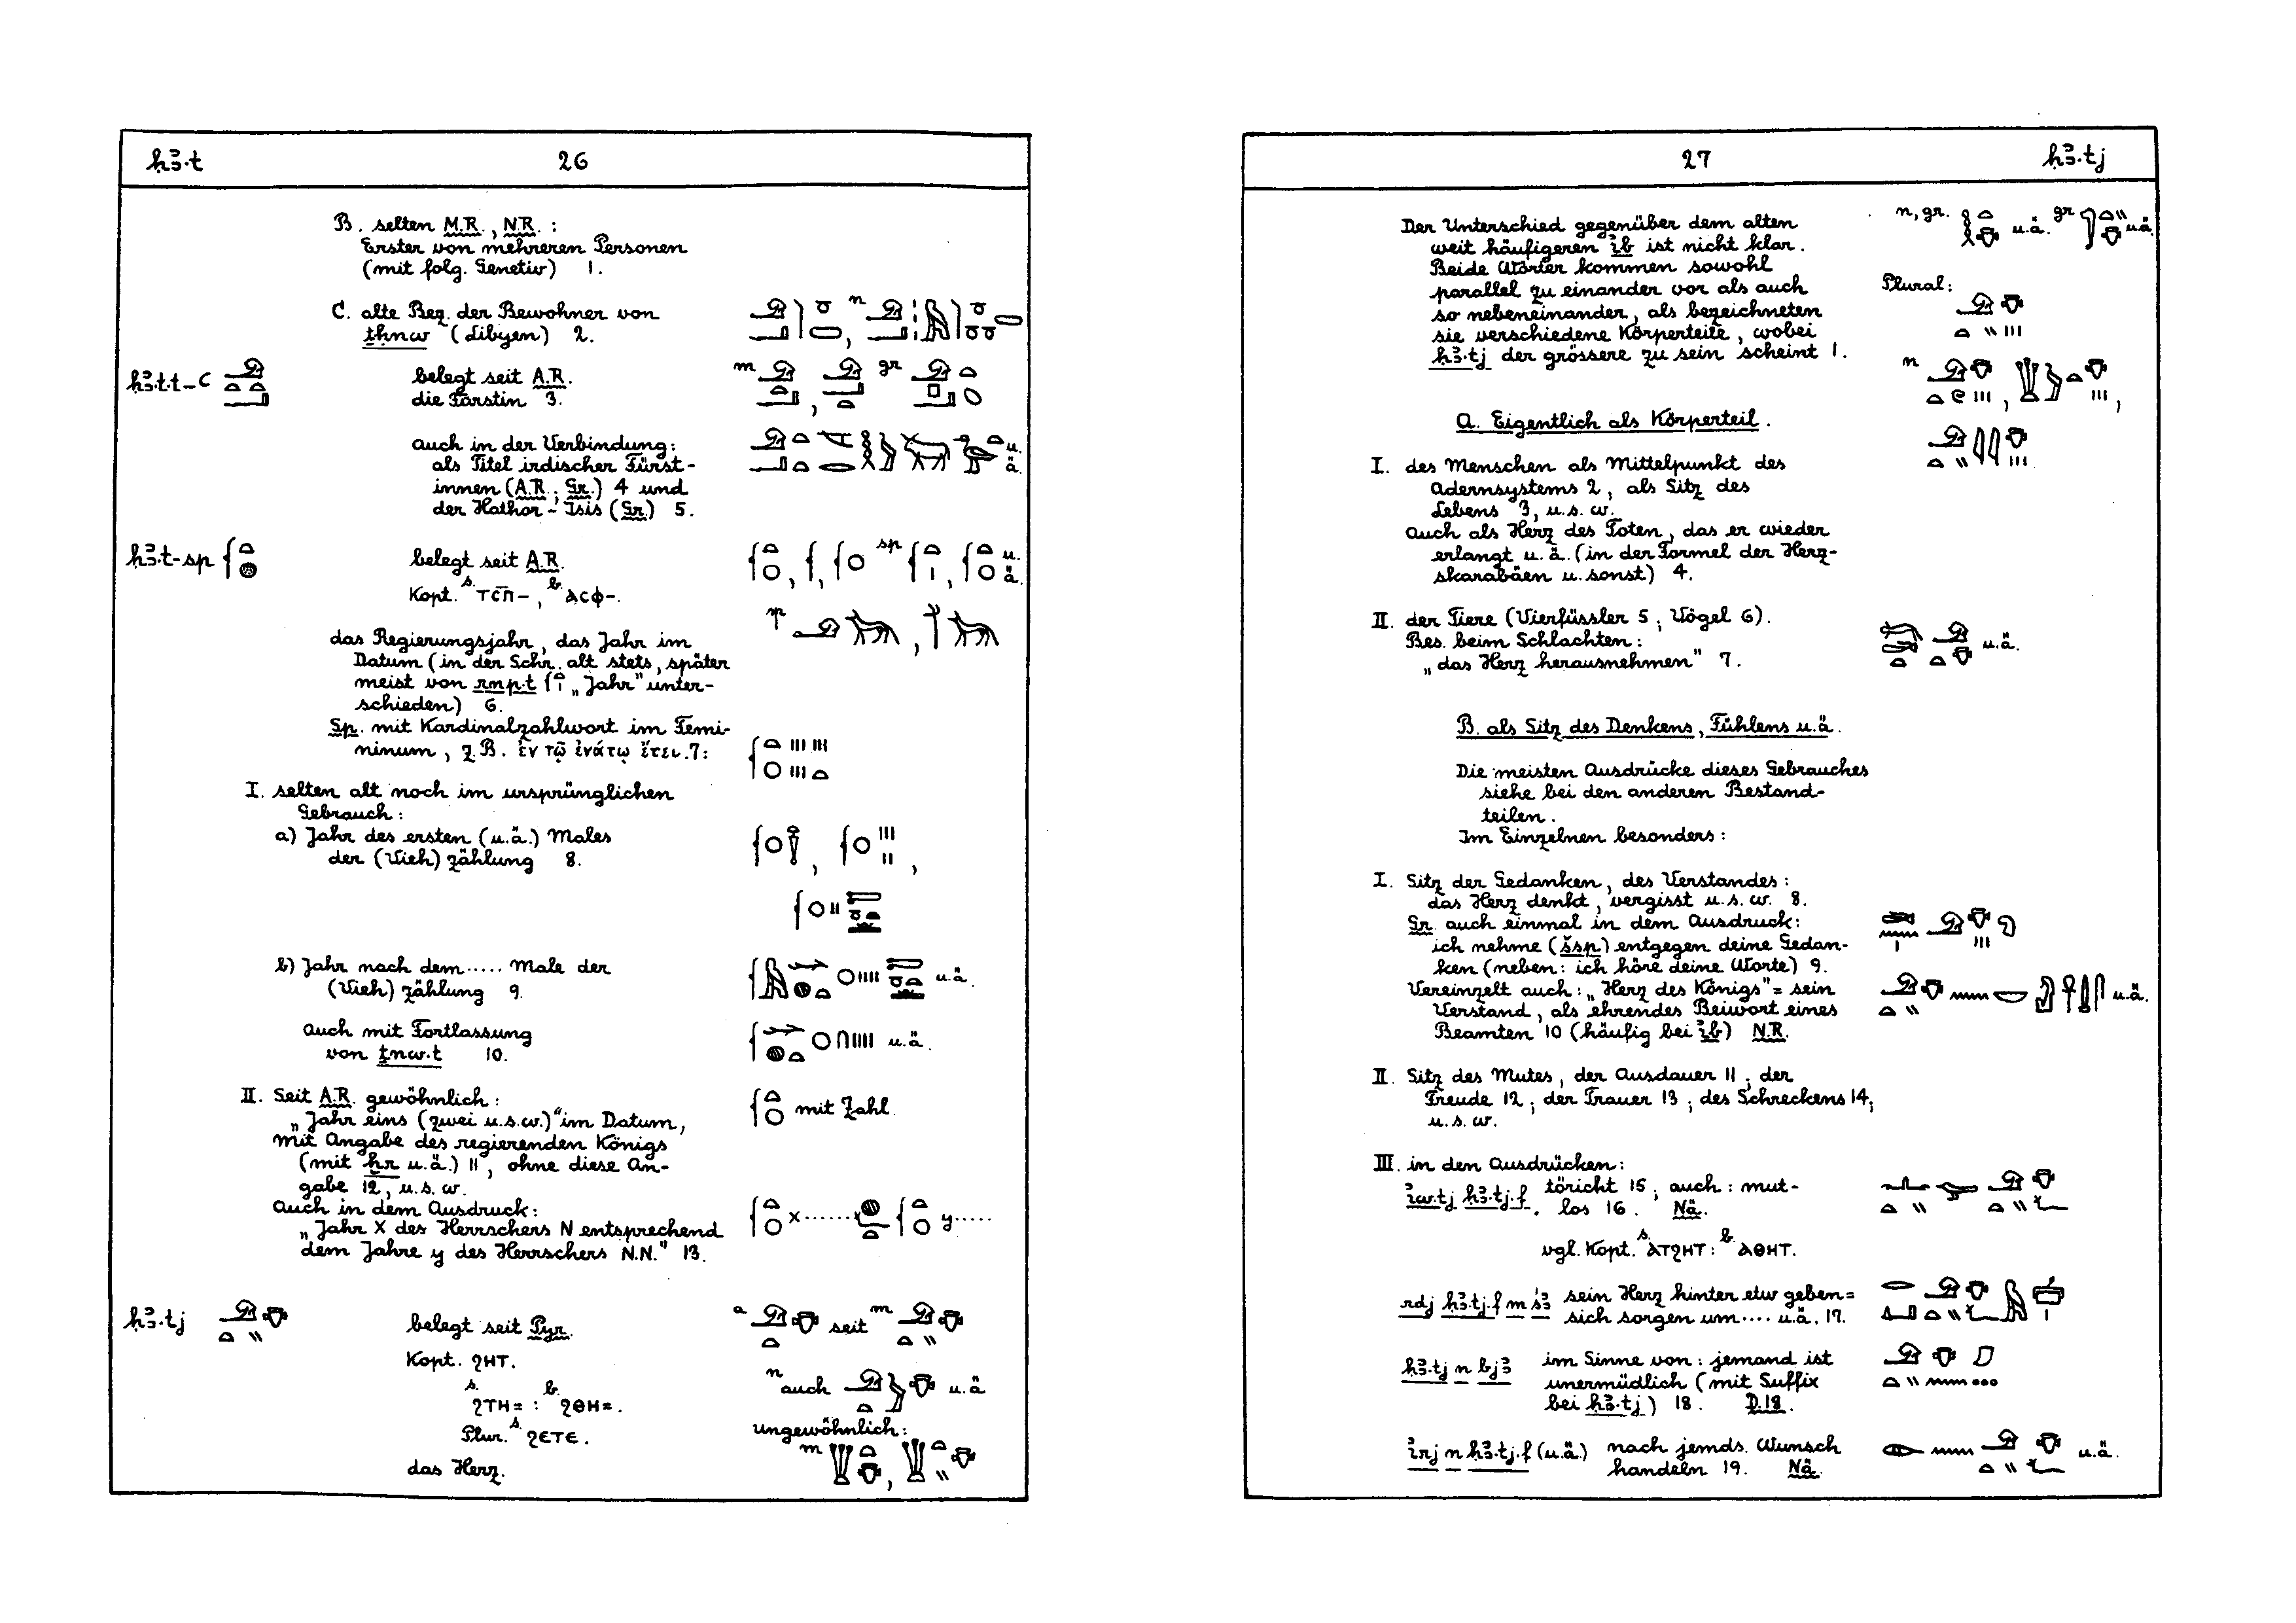 ḥꜣ.t 26
B. selten M.R., N.R. :
Erster von mehreren Personen
(mit folg. Genetiv) 1.
C. alte Bez. der Bewohner von
ṯḥnw (Libyen) 2.
ḥꜣ.t.t-ꜥ belegt seit A.R.
die Fürstin 3.
auch in der Verbindung:
als Titel irdischer Fürst-
innen (A.R.; Gr.) 4 und
der Hathor-Isis (Gr.) 5.
ḥꜣ.t-sp belegt seit A.R.
Kopt. s. ⲧⲥ̄ⲡ̄-, b. ⲁⲥⲫ-.
das Regierungsjahr, das Jahr im
Datum (in der Schr. alt stets, später
meist von rnp.t „Jahr" unter-
schieden) 6.
Sp. mit Kardinalzahlwort im Femi-
ninum, z.B. ἐν τῷ ἐνάτῳ ἔτει. 7:
I. selten alt noch im ursprünglichen
Gebrauch:
a) Jahr des ersten (u.ä.) Males
der (Vieh)zählung 8.
b) Jahr nach dem ..... Male der
(Vieh)zählung 9. u.ä.
auch mit Fortlassung
von ṯnw.t 10. u.ä.
II. Seit A.R. gewöhnlich:
„Jahr eins (zwei u.s.w.)" im Datum, mit Zahl.
mit Angabe des regierenden Königs
(mit ḫr u.ä.) 11, ohne diese An-
gabe 12, u.s.w.
Auch in dem Ausdruck:
„Jahr X des Herrschers N entsprechend
dem Jahre y des Herrschers N.N." 13. x ...... y .....
ḥꜣ.tj belegt seit Pyr. a seit m
Kopt. ϩⲏⲧ.
n auch u.ä
s. ϩⲧⲏ= : b. ϩⲑⲏ=.
Plur. s. ϩⲉⲧⲉ. ungewöhnlich:
m
das Herz.
27 ḥꜣ.tj
Der Unterschied gegenüber dem alten n, gr. u.ä. gr u.ä.
weit häufigeren ꞽb ist nicht klar.
Beide Wörter kommen sowohl
parallel zu einander vor als auch Plural:
so nebeneinander, als bezeichneten
sie verschiedene Körperteile, wobei
ḥꜣ.tj der grössere zu sein scheint 1.
n
A. Eigentlich als Körperteil.
I. des Menschen als Mittelpunkt des
Adernsystems 2, als Sitz des
Lebens 3, u.s.w.
Auch als Herz des Toten, das er wieder
erlangt u.ä. (in der Formel der Herz-
skarabäen u. sonst) 4.
II. der Tiere (Vierfüssler 5; Vögel 6).
Bes. beim Schlachten: u.ä.
„das Herz herausnehmen" 7.
B. als Sitz des Denkens, Fühlens u.ä.
Die meisten Ausdrücke dieses Gebrauches
siehe bei den anderen Bestand-
teilen.
Im Einzelnen besonders:
I. Sitz der Gedanken, des Verstandes:
das Herz denkt, vergisst u.s.w. 8.
Gr. auch einmal in dem Ausdruck:
ich nehme (šsp) entgegen deine Gedan-
ken (neben: ich höre deine Worte) 9.
Vereinzelt auch: „Herz des Königs" = sein u.ä.
Verstand, als ehrendes Beiwort eines
Beamten 10 (häufig bei ꞽb) N.R.
II. Sitz des Mutes, der Ausdauer 11; der
Freude 12; der Trauer 13; des Schreckens 14;
u.s.w.
III. in den Ausdrücken:
ꞽw.tj ḥꜣ.tj.f töricht 15; auch: mut-
los 16. Nä.
vgl. Kopt. s. ⲁⲧϩⲏⲧ: b. ⲁⲑⲏⲧ.
rdj ḥꜣ.tj.f m sꜣ sein Herz hinter etw geben=
sich sorgen um .... u.ä. 17.
ḥꜣ.tj n bjꜣ im Sinne von: jemand ist
unermüdlich (mit Suffix
bei ḥꜣ.tj) 18. D.18.
ꞽrj n ḥꜣ.tj.f (u.ä.) nach jemds. Wunsch u.ä.
handeln 19. Nä.